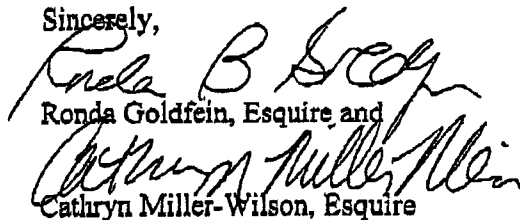 Sincerely,
Ronda B Goldfein
Ronda Goldfein, Esquire and
Cathryn Miller-Wilson
Cathryn Miller-Wilson, Esquire